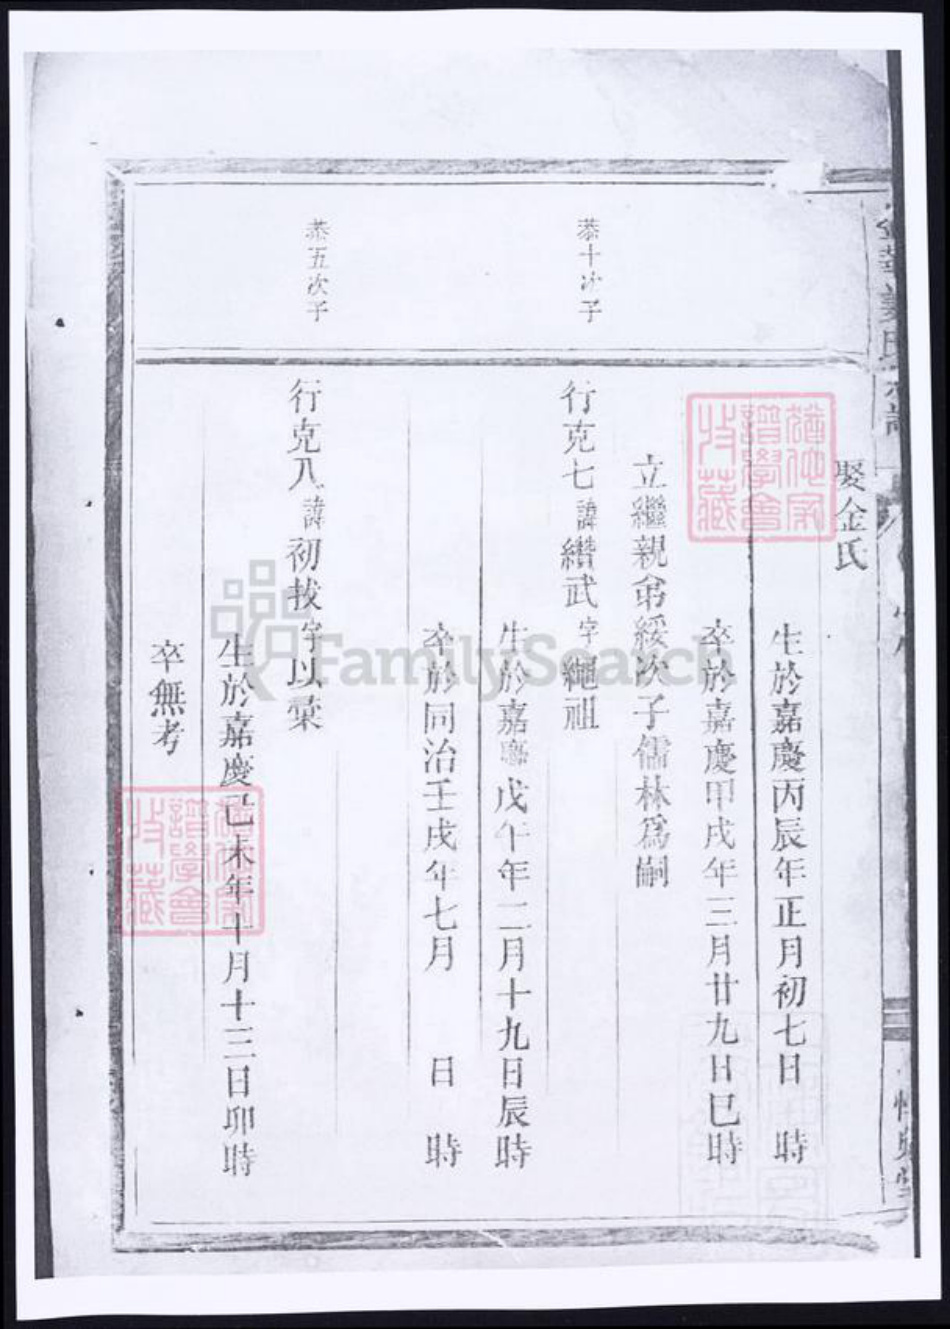 娶金氏
生於嘉慶丙辰年正月初七日 時
卒於嘉慶甲戌年三月廿九日巳時
立繼親弟綏次子儒林爲嗣
恭十次子
行克七諱纘武字繩祖
生於嘉慶戊午年二月十九日辰時
卒於同治壬戌年七月 日 時
恭五次子
行克八諱初拔字以彙
生於嘉慶己未年十月十三日卯時
卒無考
譜學會
收藏
譜學會
收藏
FamilySearch